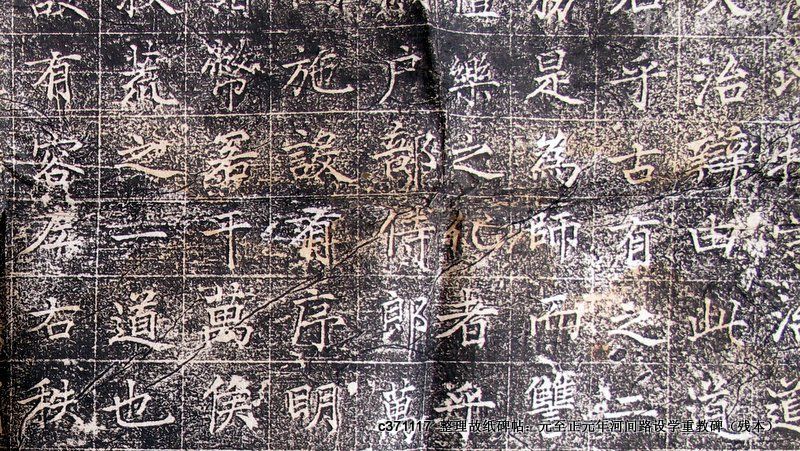 治道
治辯由此道
乎古有之仁
是為師而讐
樂之紀者毋
户部侍郎萬
施設有序明
幣器千萬俟
之一道也
有容屏右秩
c371117: 整理故纸碑帖：元至正元年河间路设学重教碑（残本）